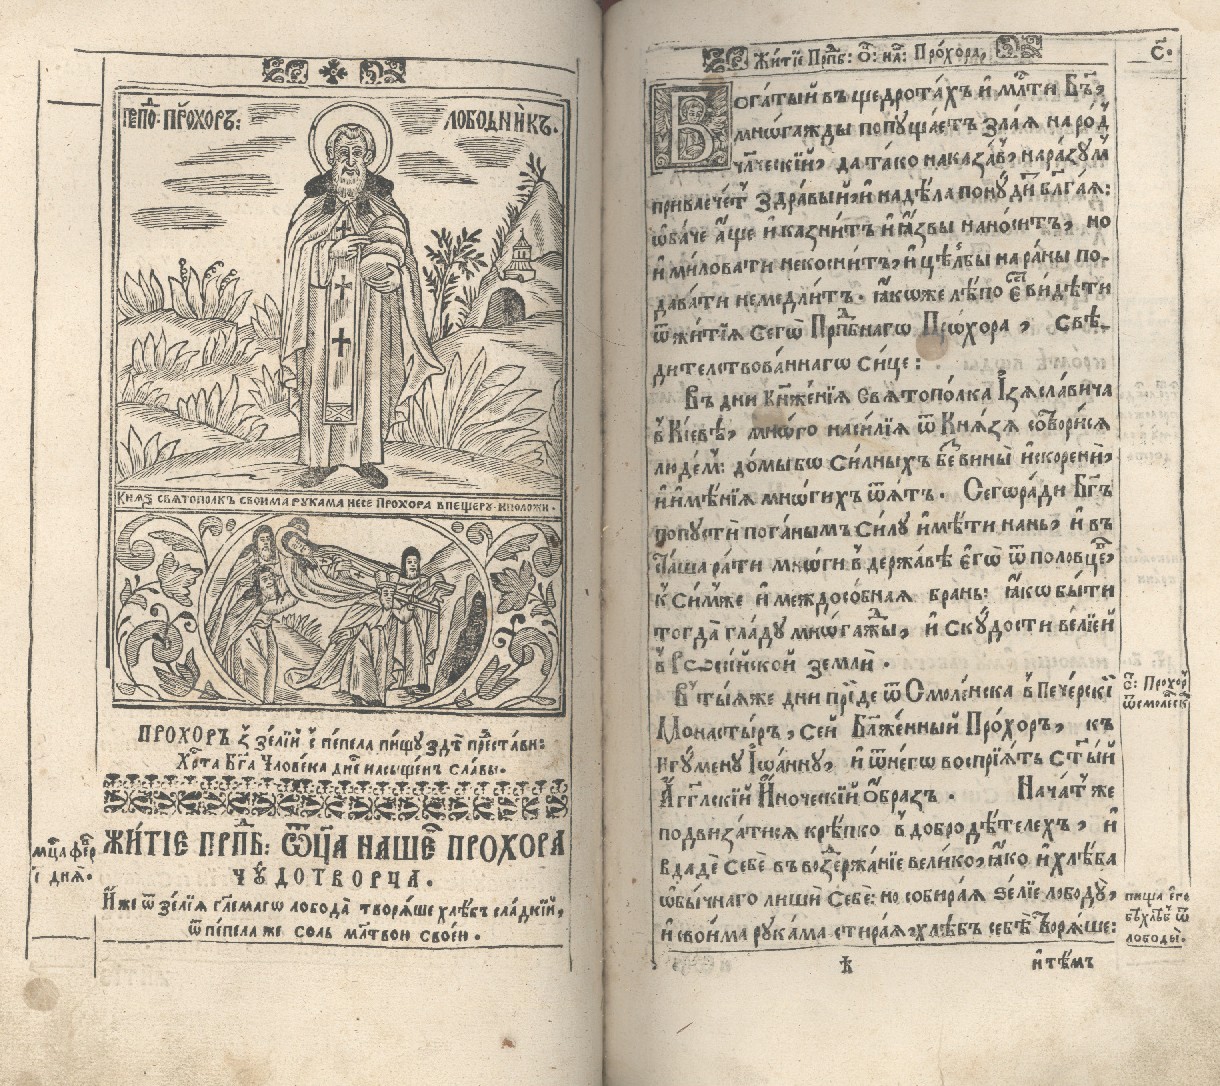 ПРПⷣО: ПРО́ХОРЪ: ЛОБОДНИ́КЪ.
КНЯЗ СВЯТОПОЛКЪ СВОИМА РУКАМА НЕСЕ ПРОХОРА ВПЕЩЕРУ И ПОЛОЖИ.
ПРОХОРЪ Ѿ ЗЕ́ЛІЙ И҆ ПЕПЕЛА ПИЩУ ЗДѢ ПРЕСТАВИ:
Хрⷭ҇та Бг҃а Человѣка дне насыщенъ славы.
ЖИ́ТІЕ ПРПⷣБ: ѾЦ҃А НАШЕⷢ҇ ПРОХОРА
ЧꙊДОТВОРЧА.
мцⷭ҇а феⷡ҇р
і҃ дня̀.
И҆́же ѿ зе́лїя гл҃емагѡ лобода̀ творя́ше хлѣбъ сла́дкїй,
ѿ пе́пела же соль мл҃твои своеи.
Жи́тїе Прпⷣб: Ѿ: на: Про́хора,
С҃.
Бога́тый въ щедрота́хъ и҆ млⷭ҇ти Бг҃ъ,
мнѡ́гажды попꙋща́етъ зла́я на ро́д
чл҃ческїй, да та́ко наказа́въ, на ра́зꙋм
привлече́т здра́вый, и҆ на дѣ́ла понꙋ́дит бл҃га́я:
ѡ҆ба́че а҆́ще и҆ казни́тъ и҆ ꙗ҆́звы нано́ситъ, но
и҆ ми́ловати некосни́тъ, и҆ цѣлбы̀ на ра́ны по-
дава́ти немедли́тъ. ꙗ҆́коже лѣ́по є҆́сть ви́дѣти
ѿ жи́тїя сегѡ̀ Прпⷣбнагѡ Прѡ́хора, свѣ-
дителствова́ннагѡ си́це:
Въ дни Кн҃же́нїя Святопо́лка І҆зясла́вича
в Кі́евѣ, мно́го наси́лїя ѿ Кня́зя сотвори́ся
лю́дем: до́мы бо си́лныхъ без вины̀ и҆скоренѝ,
и҆ и҆мѣ́нїя мнѡ́гихъ ѿя́тъ. Сегѡ̀ ра́ди Бг҃ъ
попꙋстѝ пога́нымъ си́лꙋ и҆мѣ́ти нань, и҆ въ
ста́ша ра́ти мнѡ́ги в держа́вѣ є҆гѡ̀ ѿ половецъ,
к си́мже и҆ междосо́бная брань: ꙗ҆́кѡ бы́ти
тогда̀ гла́дꙋ мнѡ́гажды, и҆ скꙋ́дости ве́лїей
в Рѡссі́йской землѝ.
В ты́яже дни прїи́де ѿ Смоле́нска в Пече́рскї
Монасты́ръ, сей Бл҃же́нный Про́хоръ, къ
и҆гꙋ́менꙋ І҆ѡа́ннꙋ, и҆ ѿ негѡ̀ воспрїя́тъ ст҃ы́й
А҆́гг҃лскїй И҆́ноческїй О҆́бразъ. Нача́т же
подвиза́тися крѣ́пко в добродѣ́телехъ, и҆
вдадѐ себѐ въ воздержа́нїе вели́ко, ꙗ҆́ко и҆ хлѣ́ба
ѡ҆бы́чнаго лишѝ себѐ: но собира́я ѕе́лїе лободꙋ̀,
и҆ свои́ма рꙋка́ма стира́я, хлѣ́бъ себѣ̀ творя́ше:
С: Прохор
ѿ смоленск
пища єго
бѣ хлѣб ѿ
лободы̀.
и҆ тѣ́мъ